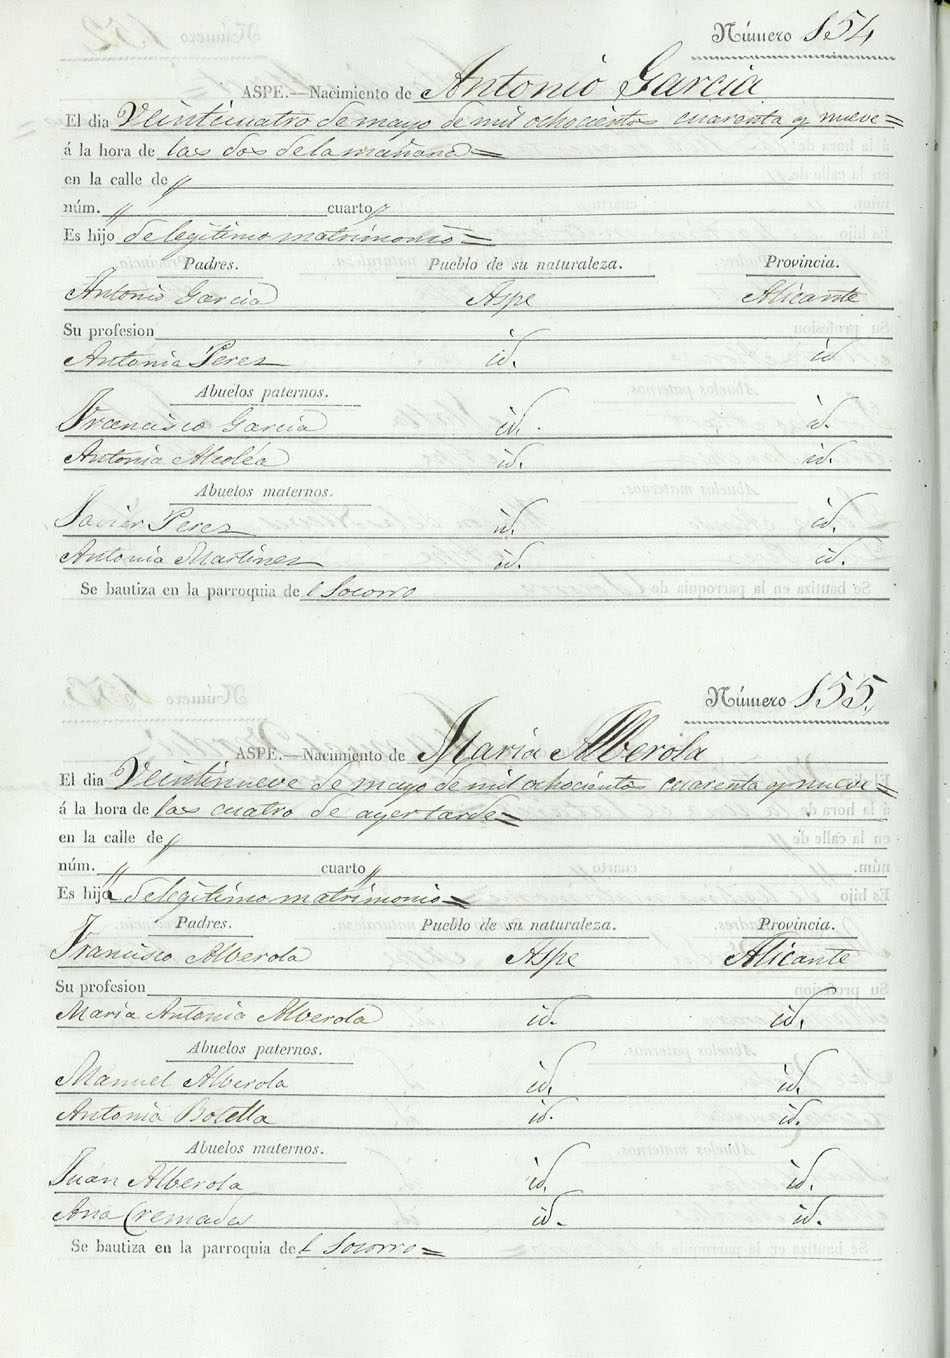 Número 154
ASPE.—Nacimiento de Antonio Garcia
El dia Veinticuatro de mayo de mil ochocientos cuarenta y nueve=
á la hora de las dos de la mañana=
en la calle de "
núm. " cuarto "
Es hijo de legitimo matrimonio=
Padres. Pueblo de su naturaleza. Provincia.
Antonio Garcia Aspe Alicante
Su profesion
Antonia Perez id. id
Abuelos paternos.
Francisco Garcia id. id.
Antonia Alcoléa id. id.
Abuelos maternos.
Javier Perez id. id.
Antonia Martinez id. id.
Se bautiza en la parroquia del Socorro
Número 155.
ASPE.—Nacimiento de Maria Alberola
El dia Veintinueve de mayo de mil ochociento cuarenta y nueve=
á la hora de las cuatro de ayer tarde=
en la calle de "
núm. " cuarto "
Es hija de legitimo matrimonio=
Padres. Pueblo de su naturaleza. Provincia.
Francisco Alberola Aspe Alicante
Su profesion
Maria Antonia Alberola id. id.
Abuelos paternos.
Manuel Alberola id. id.
Antonia Botella id. id.
Abuelos maternos.
Juan Alberola id. id.
Ana Cremades id. id.
Se bautiza en la parroquia del Socorro=